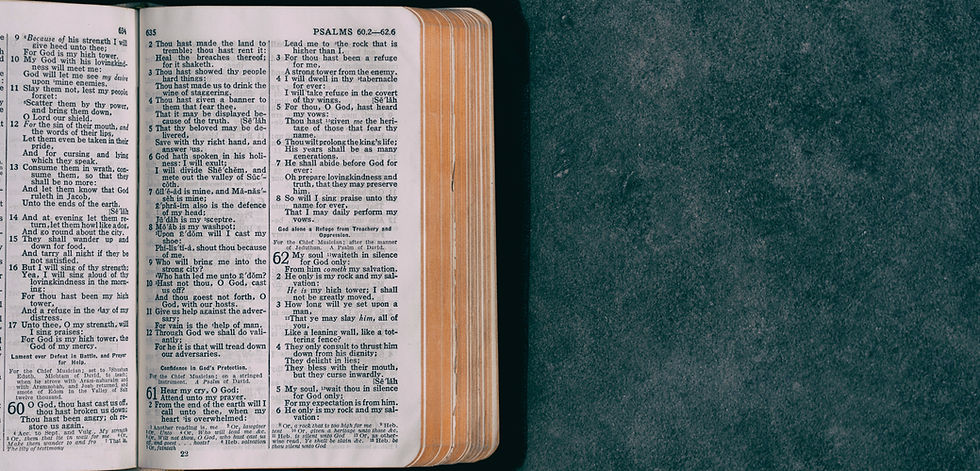 634
9 Because of his strength I will
give heed unto thee;
For God is my high tower.
10 My God with his lovingkind-
ness will meet me:
God will let me see my desire
upon mine enemies.
11 Slay them not, lest my people
forget:
Scatter them by thy power,
and bring them down,
O Lord our shield.
12 For the sin of their mouth, and
the words of their lips,
Let them even be taken in their
pride,
And for cursing and lying
which they speak.
13 Consume them in wrath, con-
sume them, so that they
shall be no more:
And let them know that God
ruleth in Jacob,
Unto the ends of the earth.
[Sē´lȧh
14 And at evening let them re-
turn, let them howl like a dog,
And go round about the city.
15 They shall wander up and
down for food,
And tarry all night if they be
not satisfied.
16 But I will sing of thy strength;
Yea, I will sing aloud of thy
lovingkindness in the morn-
ing:
For thou hast been my high
tower,
And a refuge in the day of my
distress.
17 Unto thee, O my strength, will
I sing praises:
For God is my high tower, the
God of my mercy.
Lament over Defeat in Battle, and Prayer
for Help.
For the Chief Musician; set to Shushan
Eduth. Michtam of David, to teach;
when he strove with Aram-naharaim and
with Aramzobah, and Joab returned, and
smote of Edom in the Valley of Salt
twelve thousand.
60 O God, thou hast cast us off,
thou hast broken us down;
Thou hast been angry; oh re-
store us again.
635
PSALMS 60.2—62.6
2 Thou hast made the land to
tremble; thou hast rent it:
Heal the breaches thereof;
for it shaketh.
3 Thou hast showed thy people
hard things:
Thou hast made us to drink the
wine of staggering.
4 Thou hast given a banner to
them that fear thee,
That it may be displayed be-
cause of the truth. [Sē´lȧh
5 That thy beloved may be de-
livered,
Save with thy right hand, and
answer us.
6 God hath spoken in his holi-
ness: I will exult;
I will divide Shē´chĕm, and
mete out the valley of Sŭc´-
cŏth.
7 Gĭl´ē-ăd is mine, and Mȧ-năs´-
sēh is mine;
Ē´phrȧ-ĭm also is the defence
of my head;
Jū´dȧh is my sceptre.
8 Mō´ăb is my washpot;
Upon Ē´dŏm will I cast my
shoe:
Phĭ-lĭs´tĭ-ȧ, shout thou because
of me.
9 Who will bring me into the
strong city?
Who hath led me unto Ē´dŏm?
10 Hast not thou, O God, cast
us off?
And thou goest not forth, O
God, with our hosts.
11 Give us help against the adver-
sary;
For vain is the help of man.
12 Through God we shall do vali-
antly;
For he it is that will tread down
our adversaries.
Confidence in God's Protection.
For the Chief Musician; on a stringed
instrument. A Psalm of David.
61 Hear my cry, O God;
Attend unto my prayer.
2 From the end of the earth will I
call unto thee, when my
heart is overwhelmed:
22
Lead me to the rock that is
higher than I.
3 For thou hast been a refuge
for me,
A strong tower from the enemy.
4 I will dwell in thy tabernacle
for ever:
I will take refuge in the covert
of thy wings. [Sē´lȧh
5 For thou, O God, hast heard
my vows:
Thou hast given me the heri-
tage of those that fear thy
name.
6 Thou wilt prolong the king's life;
His years shall be as many
generations.
7 He shall abide before God for
ever:
Oh prepare lovingkindness and
truth, that they may preserve
him.
8 So will I sing praise unto thy
name for ever,
That I may daily perform my
vows.
God alone a Refuge from Treachery and
Oppression.
For the Chief Musician; after the manner
of Jeduthun. A Psalm of David.
62 My soul waiteth in silence
for God only:
From him cometh my salvation.
2 He only is my rock and my sal-
vation:
He is my high tower; I shall
not be greatly moved.
3 How long will ye set upon a
man,
That ye may slay him, all of
you,
Like a leaning wall, like a tot-
tering fence?
4 They only consult to thrust him
down from his dignity;
They delight in lies;
They bless with their mouth,
but they curse inwardly.
[Sē´lȧh
5 My soul, wait thou in silence
for God only;
For my expectation is from him.
6 He only is my rock and my sal-
vation: